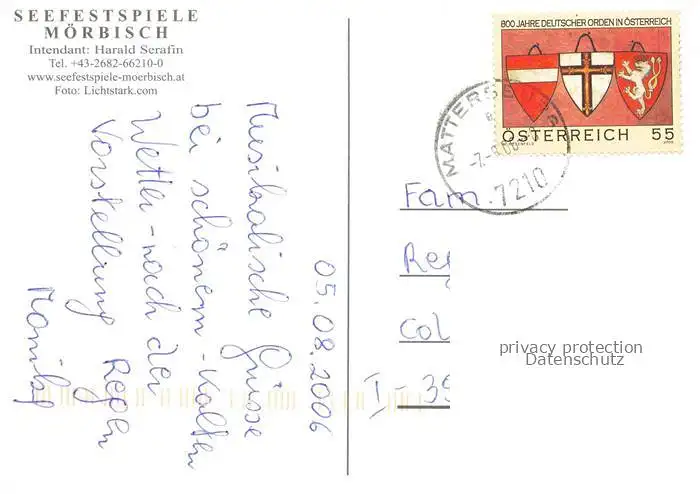 SEEFESTSPIELE
MÖRBISCH
Intendant: Harald Serafin
Tel. +43-2682-66210-0
www.seefestspiele-moerbisch.at
Foto: Lichtstark.com
05.08.2006
Musikalische Grüsse
bei schönem - kalten
Wetter - nach der
Vorstellung Regen
800 JAHRE DEUTSCHER ORDEN IN ÖSTERREICH
ÖSTERREICH 55
MATTERSBURG
7210
Fam.
Re
Col
I - 39
privacy protection
Datenschutz